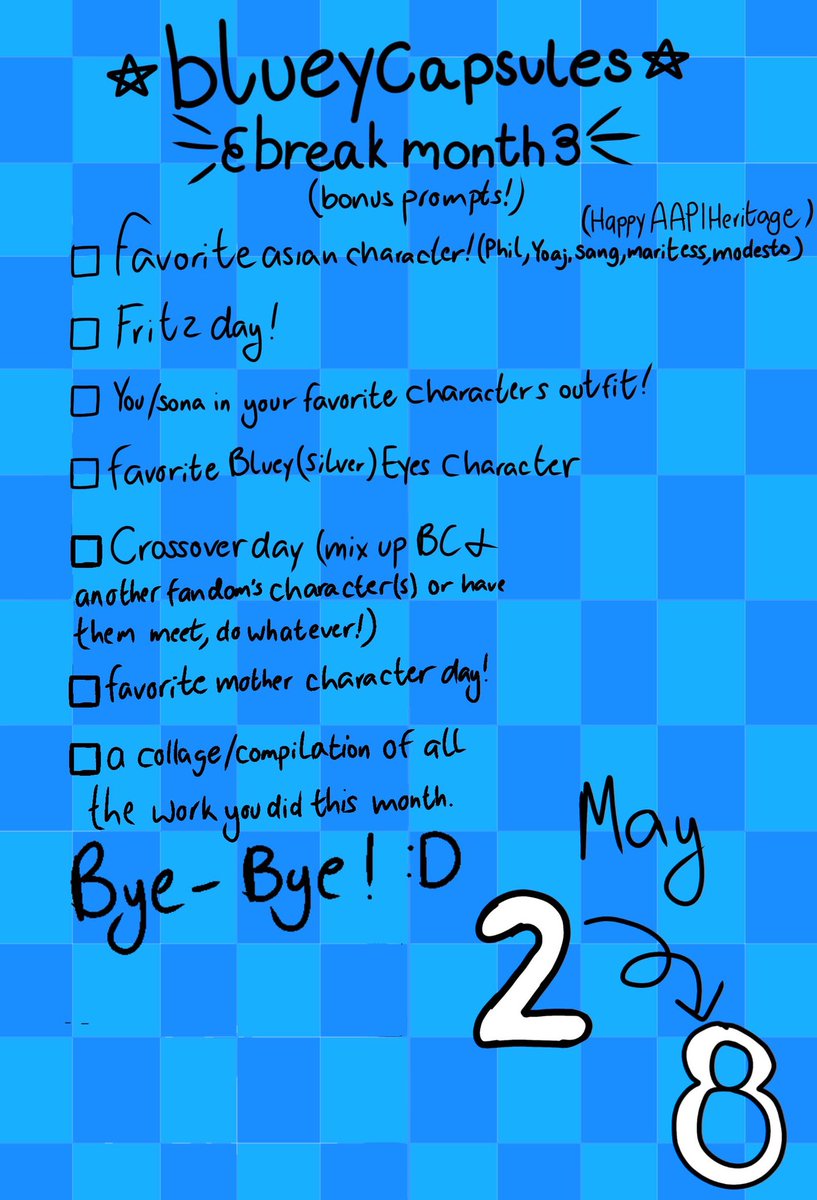 blueycapsules
break month
(bonus prompts!)
(Happy AAPI Heritage)
favorite asian character! (Phil, Yoaj, Sang, maritess, modesto)
Fritz day!
You/sona in your favorite characters outfit!
favorite Bluey (silver) Eyes Character
Crossover day (mix up BC &
another fandom's character(s) or have
them meet, do whatever!)
favorite mother character day!
a collage/compilation of all
the work you did this month.
Bye-Bye! :D
May
2
8